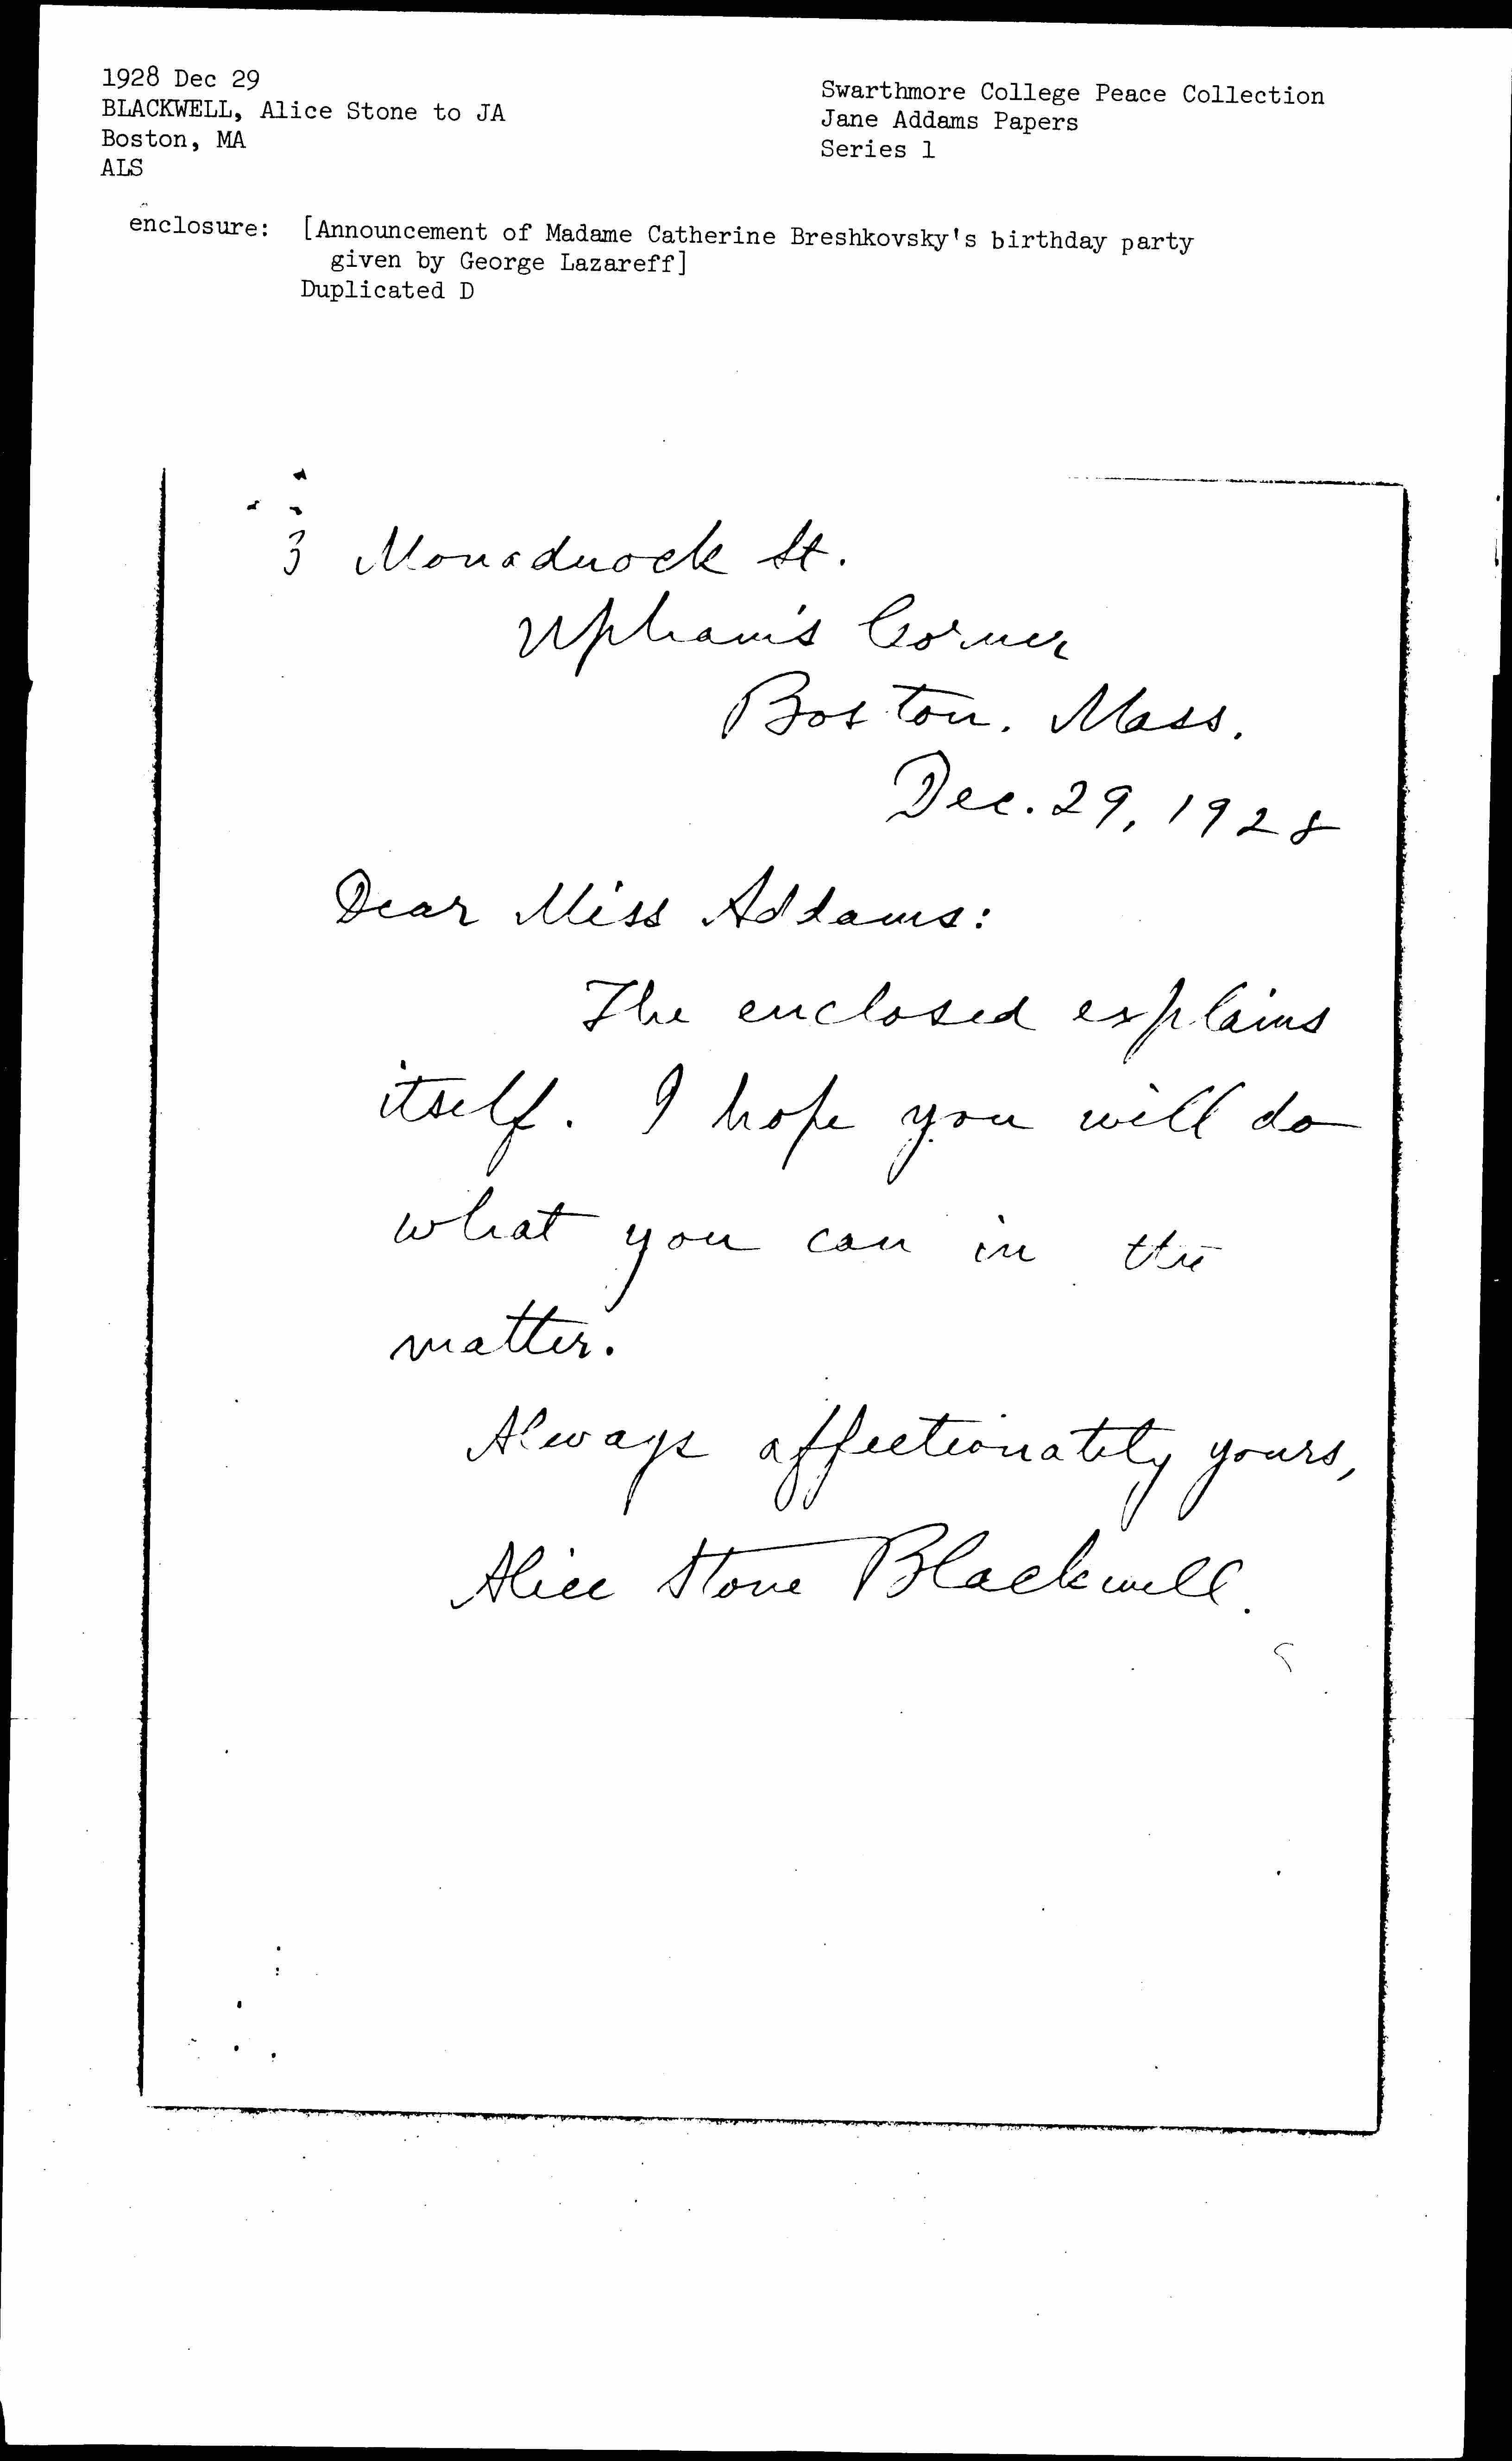 1928 Dec 29
BLACKWELL, Alice Stone to JA
Boston, MA
ALS
Swarthmore College Peace Collection
Jane Addams Papers
Series 1
enclosure: [Announcement of Madame Catherine Breshkovsky's birthday party
given by George Lazareff]
Duplicated D
3 Monadnock St.
Upham's Corner
Boston. Mass.
Dec. 29, 1928
Dear Miss Addams:
The enclosed explains
itself. I hope you will do
what you can in the
matter.
Always affectionately yours,
Alice Stone Blackwell.